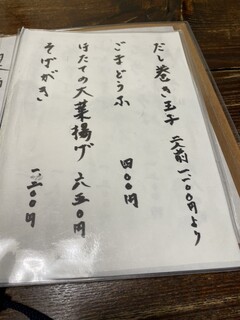 だし巻き玉子 二人前一、一〇〇円より
ごまどうふ 四〇〇円
ほたての天葉揚げ 六五〇円
そばがき 一、二〇〇円